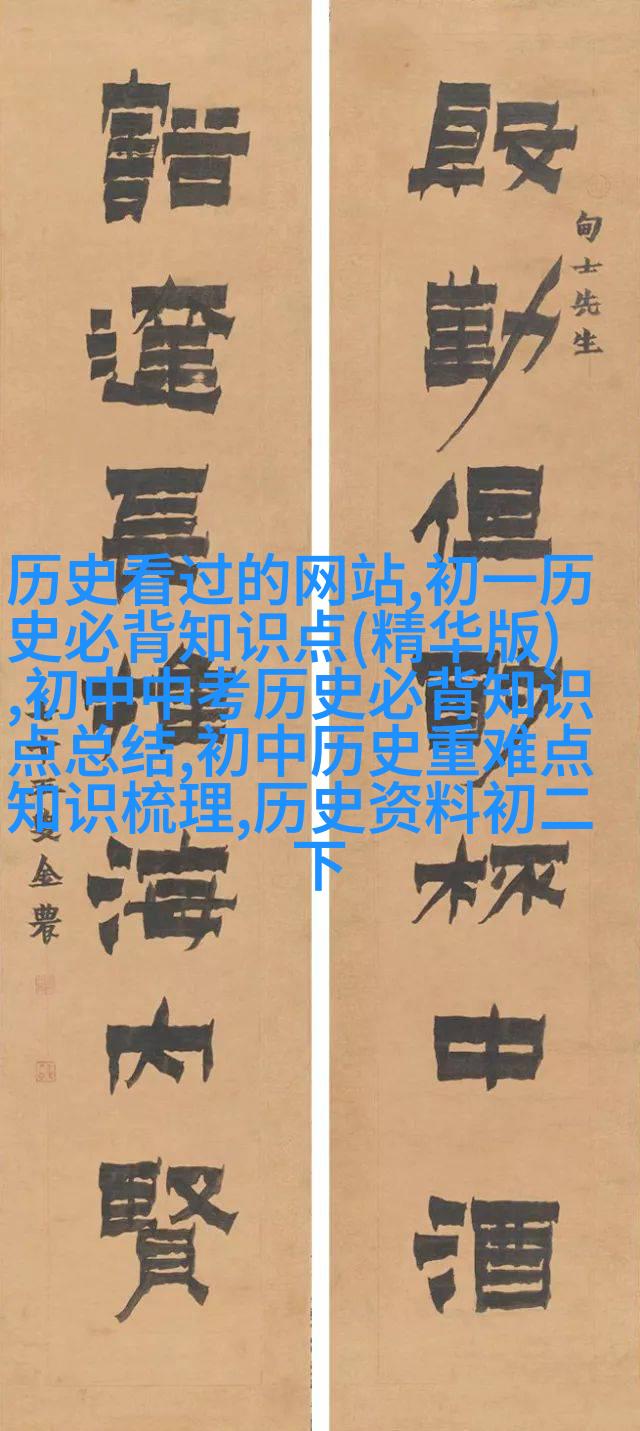 甸士先生
殷勤但酌杯中酒
豁達長推海内賢
叟金農
历史看过的网站,初一历
史必背知识点(精华版)
,初中中考历史必背知识
点总结,初中历史重难点
知识梳理,历史资料初二
下